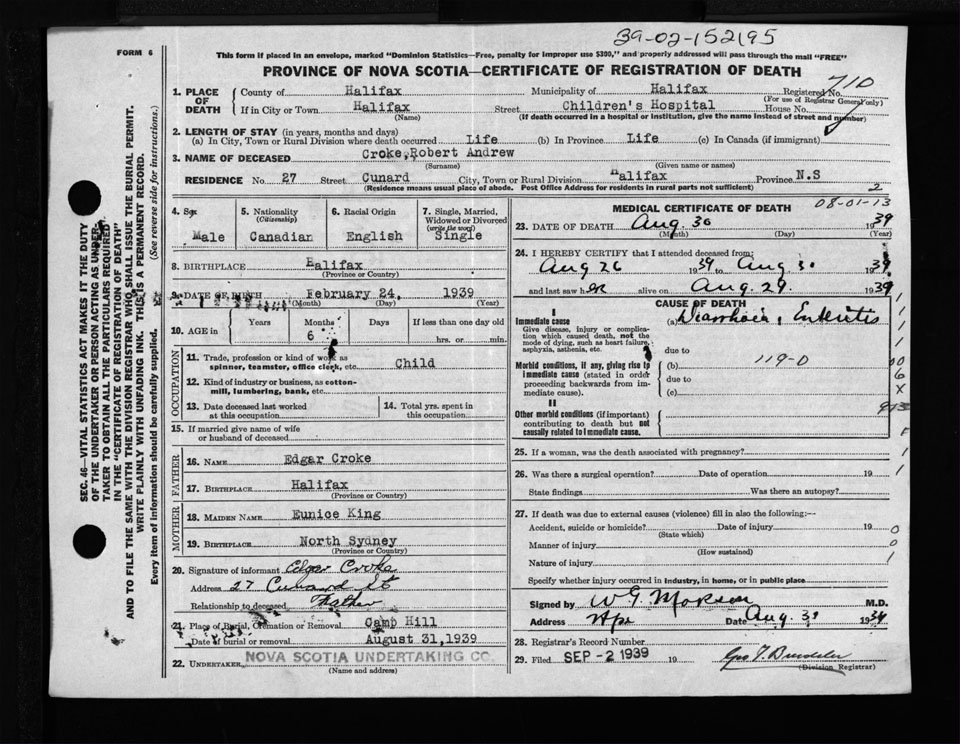 39-02-152195
FORM 6
This form if placed in an envelope, marked "Dominion Statistics—Free, penalty for improper use $300," and properly addressed will pass through the mail "FREE"
PROVINCE OF NOVA SCOTIA—CERTIFICATE OF REGISTRATION OF DEATH
SEC. 46—VITAL STATISTICS ACT MAKES IT THE DUTY
OF THE UNDERTAKER OR PERSON ACTING AS UNDER-
TAKER TO OBTAIN ALL THE PARTICULARS REQUIRED
IN THE "CERTIFICATE OF REGISTRATION OF DEATH"
AND TO FILE THE SAME WITH THE DIVISION REGISTRAR WHO SHALL ISSUE THE BURIAL PERMIT.
WRITE PLAINLY WITH UNFADING INK. THIS IS A PERMANENT RECORD.
Every item of information should be carefully supplied. (See reverse side for instructions.)
1. PLACE OF DEATH County of Halifax Municipality of Halifax Registered No. 710
(For use of Registrar Generally only)
If in City or Town Halifax Street Children's Hospital House No.
(Name) (If death occurred in a hospital or institution, give the name instead of street and number)
2. LENGTH OF STAY (in years, months and days)
(a) In City, Town or Rural Division where death occurred Life (b) In Province Life (c) In Canada (if immigrant)
3. NAME OF DECEASED Croke, Robert Andrew
(Surname) (Given name or names)
RESIDENCE No. 27 Street Cunard City, Town or Rural Division Halifax Province N.S
(Residence means usual place of abode. Post Office Address for residents in rural parts not sufficient) 2
4. Sex Male
5. Nationality (Citizenship) Canadian
6. Racial Origin English
7. Single, Married, Widowed or Divorced (write the word) Single
8. BIRTHPLACE Halifax
(Province or Country)
9. DATE OF BIRTH February 24, 1939
(Month) (Day) (Year)
10. AGE in Years Months Days If less than one day old
6 hrs. or min.
OCCUPATION
11. Trade, profession or kind of work as
spinner, teamster, office clerk, etc. Child
12. Kind of industry or business, as cotton-
mill, lumbering, bank, etc.
13. Date deceased last worked
at this occupation
14. Total yrs. spent in
this occupation
15. If married give name of wife
or husband of deceased
FATHER
16. NAME Edgar Croke
17. BIRTHPLACE Halifax
(Province or Country)
MOTHER
18. MAIDEN NAME Eunice King
19. BIRTHPLACE North Sydney
(Province or Country)
20. Signature of informant Edgar Croke
Address 27 Cunard St
Relationship to deceased Father
21. Place of Burial, Cremation or Removal Camp Hill
Date of burial or removal August 31, 1939
22. UNDERTAKER NOVA SCOTIA UNDERTAKING CO.
(Name and address)
MEDICAL CERTIFICATE OF DEATH 08-01-13
23. DATE OF DEATH Aug. 30 1939
(Month) (Day) (Year)
24. I HEREBY CERTIFY that I attended deceased from:
Aug 26 1939 to Aug. 30 1939
and last saw h alive on Aug. 29. 1939
CAUSE OF DEATH
I
Immediate cause
Give disease, injury or complica-
tion which caused death, not the
mode of dying, such as heart failure,
asphyxia, asthenia, etc.
(a) Diarrhoea, Enteritis
due to
Morbid conditions, if any, giving rise to
immediate cause (stated in order
proceeding backwards from im-
mediate cause).
(b) 119-0
due to
(c)
II
Other morbid conditions (if important)
contributing to death but not
causally related to immediate cause.
25. If a woman, was the death associated with pregnancy?
26. Was there a surgical operation? Date of operation 19
State findings Was there an autopsy?
27. If death was due to external causes (violence) fill in also the following:—
Accident, suicide or homicide? Date of injury 19
(State which)
Manner of injury
(How sustained)
Nature of injury
Specify whether injury occurred in industry, in home, or in public place
Signed by W G M.D.
Address Hfx Date Aug. 31 1939
28. Registrar's Record Number
29. Filed SEP -2 1939 19
(Division Registrar)